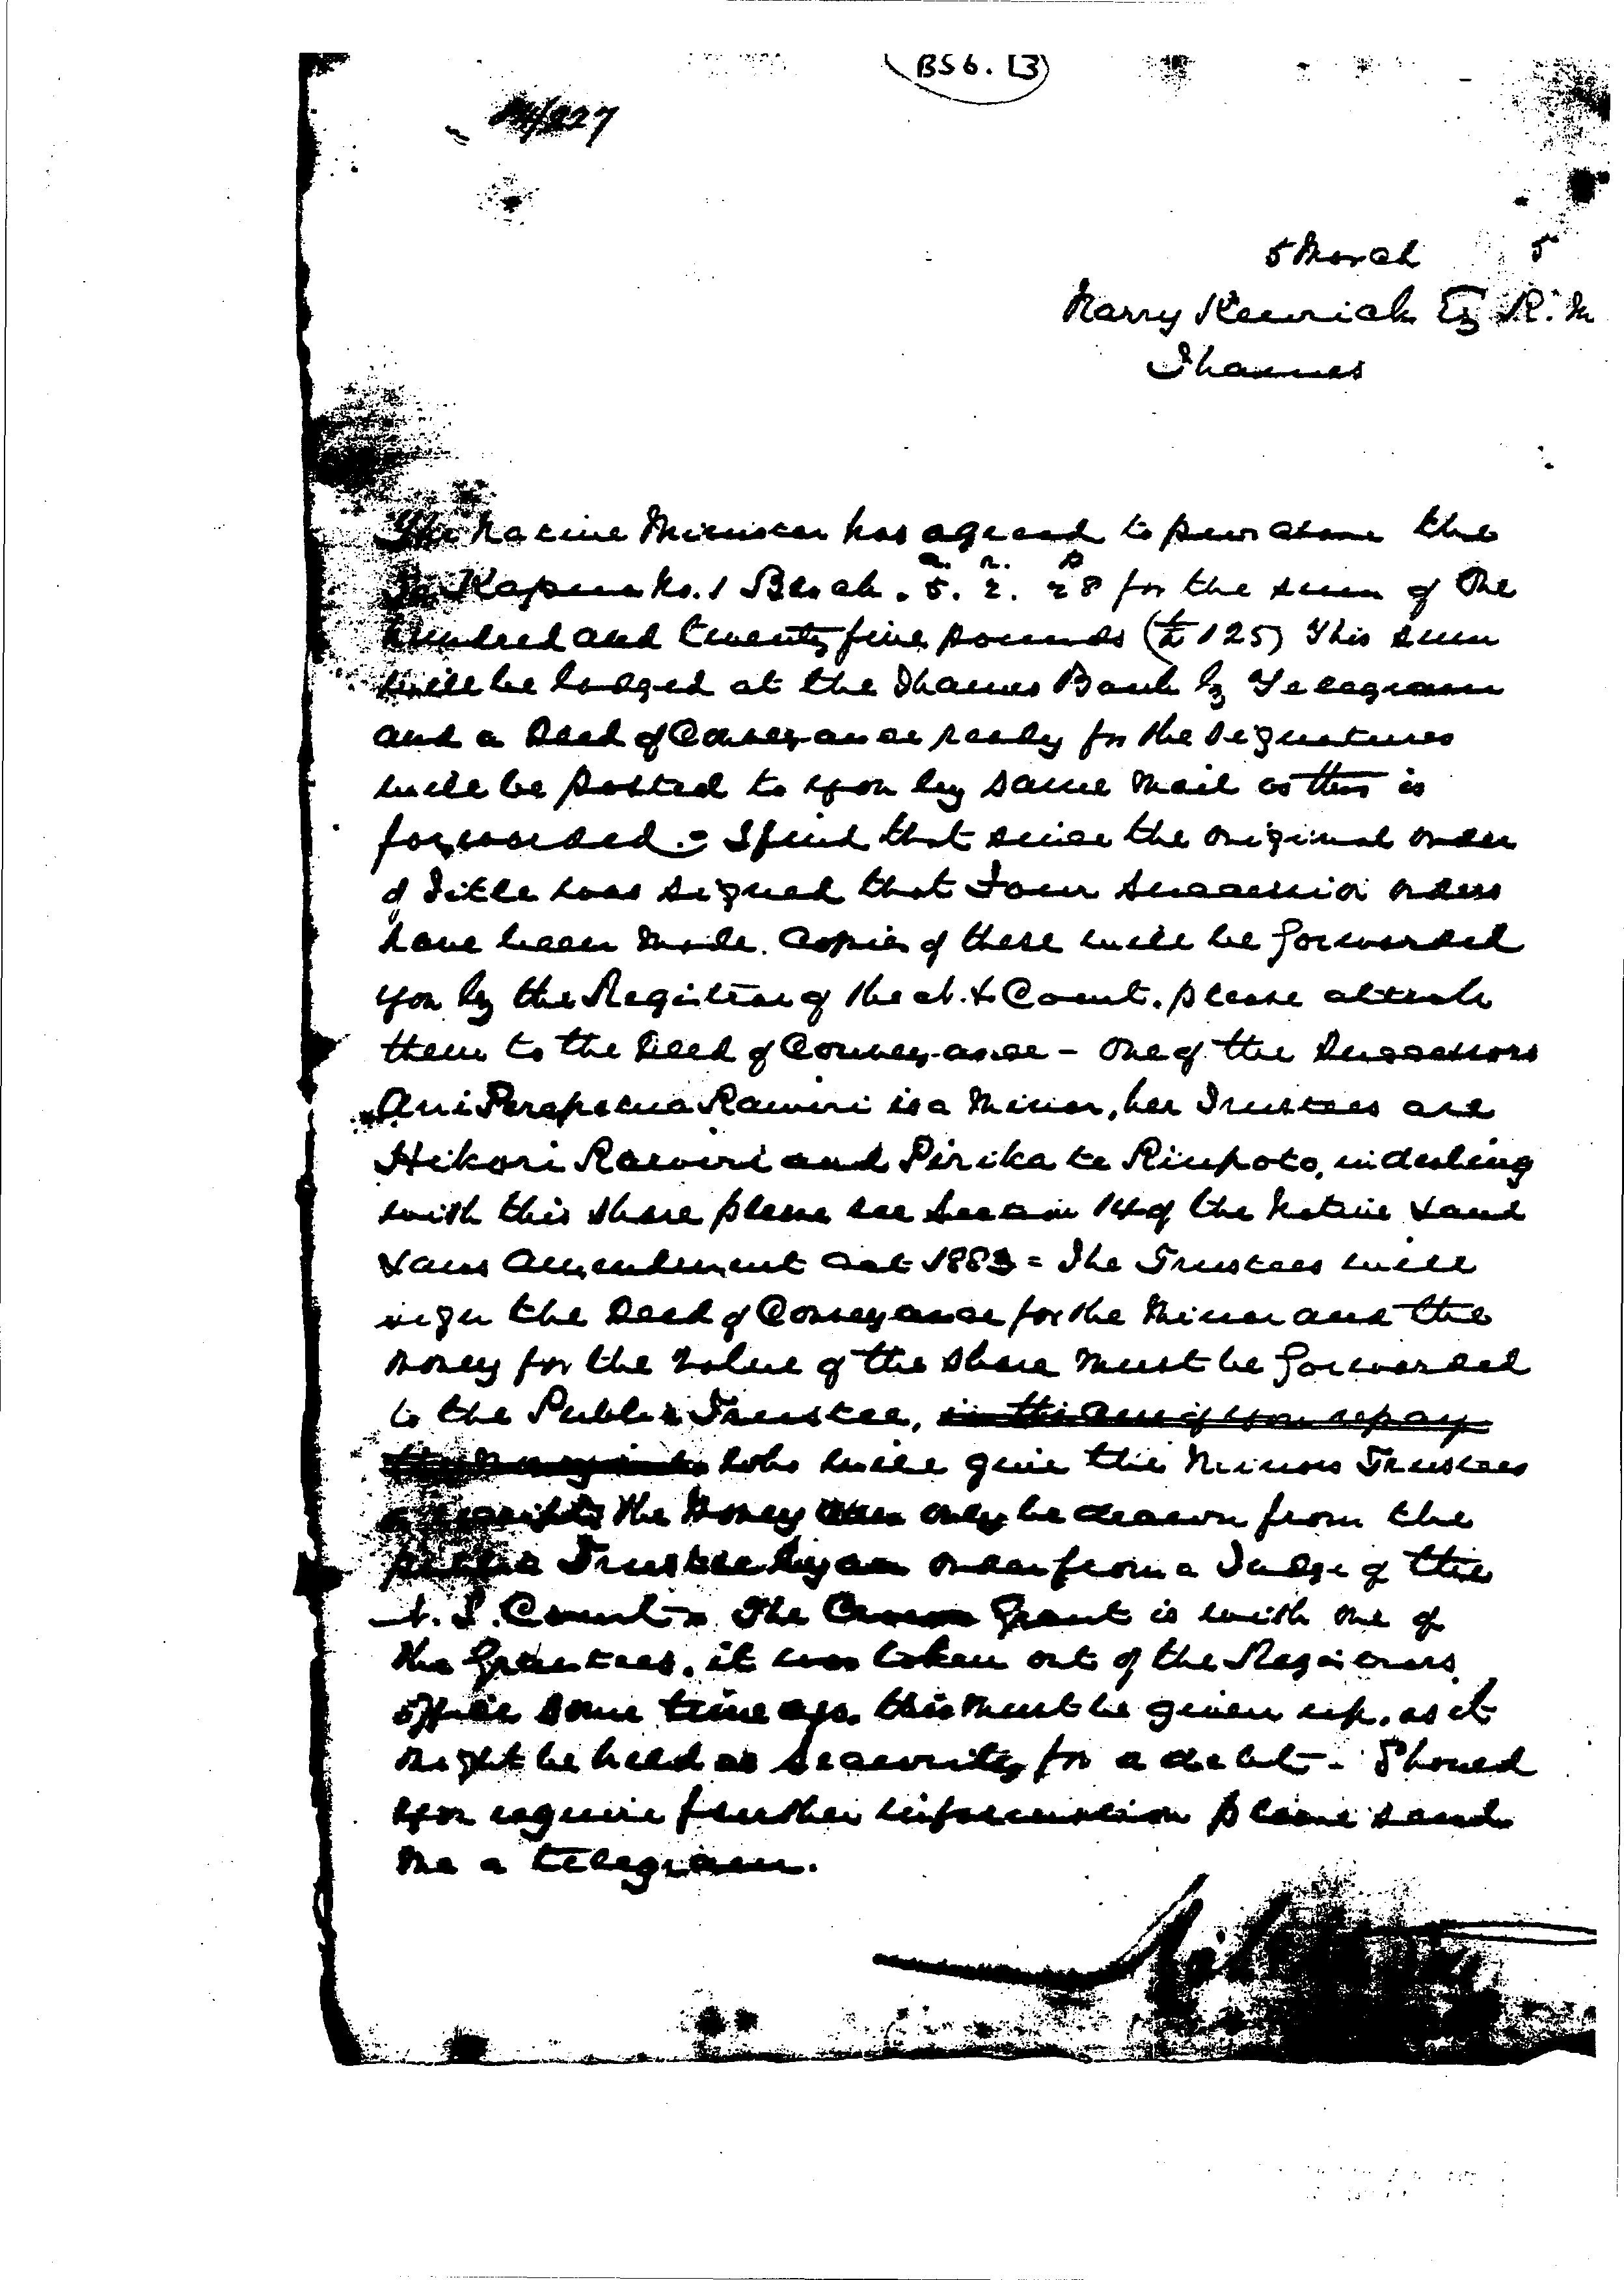 B56. L3
84/227
5 March 5
Harry Kenrick Esq R.M
Thames
The Native Minister has agreed to purchase the
Te Kapua No. 1 Block. 5. 2. 28 for the sum of One
a. r. p
hundred and twenty five pounds (£125) This sum
will be lodged at the Thames Bank by Telegram
and a Deed of Conveyance ready for the signatures
will be posted to you by same mail as this is
forwarded. = I find that since the original order
of Title was signed that Four succession orders
have been made. Copies of these will be forwarded
you by the Registrar of the N. L Court. please attach
them to the Deed of Conveyance - One of the Successors
Ani Rawiri is a Minor, her Trustees are
Hikori Rawiri and Pirika te Riupoto, in dealing
with this share please see Section 14 of the Native Land
Laws Amendment Act 1883 = The Trustees will
sign the Deed of Conveyance for the Minor and the
money for the value of the share must be forwarded
to the Public Trustee, in the
who will give the Minors Trustees
a receipt, the Money can only be drawn from the
public Trustee by an order from a Judge of the
N. L. Court = The Crown Grant is with one of
the Grantees, it was taken out of the Registrars
office some time ago. this must be given up, as it
might be held as security for a debt - Should
you require further information please send
me a telegram.